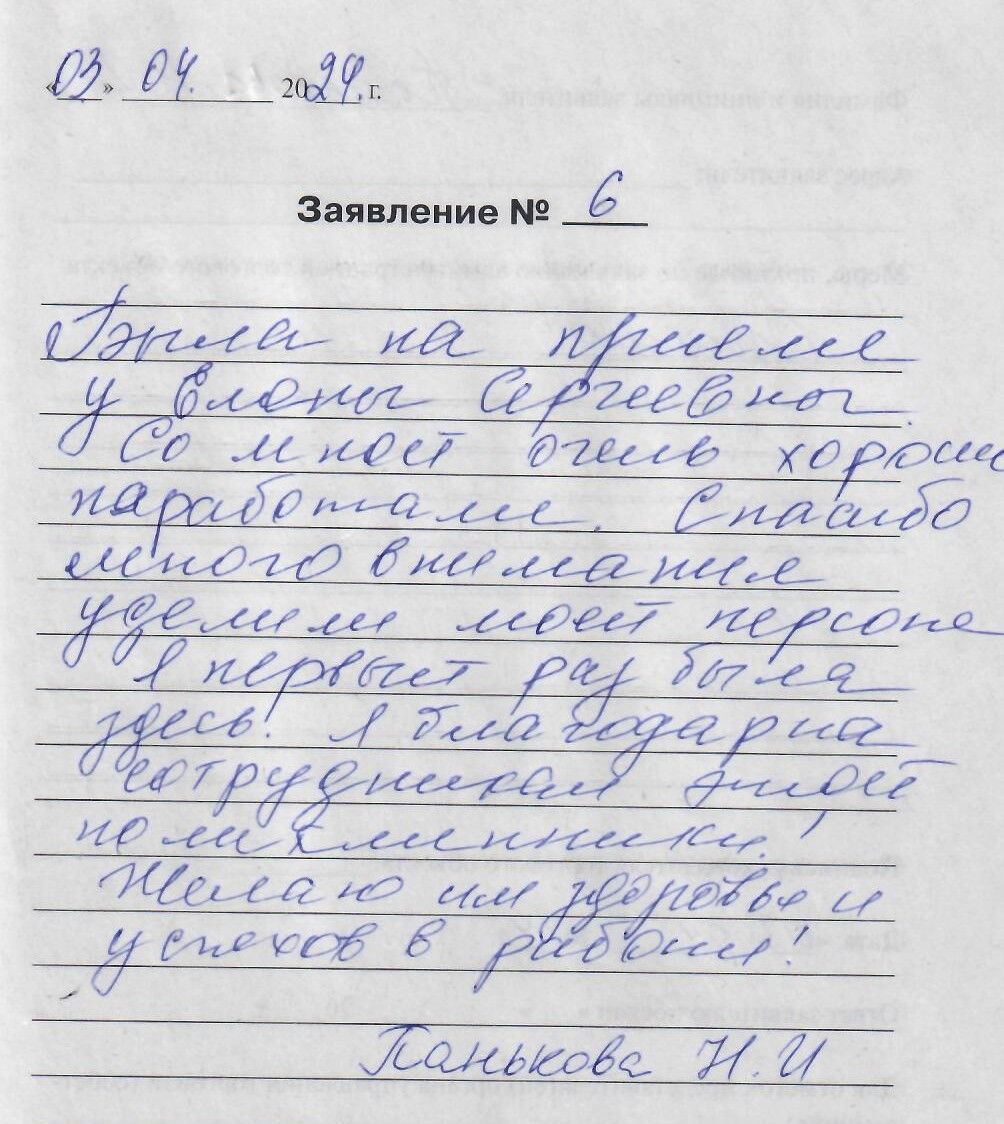 «03» 04. 2024. г.
Заявление № 6
Была на приеме
у Елены Сергеевны.
Со мной очень хорошо
паработали. Спасибо
много внимания
уделили моей персоне
Я первый раз была
здесь! Я благодарна
сотрудникам этой
поликлинники!
Желаю им здоровья и
успехов в работе!
Панькова Н. И